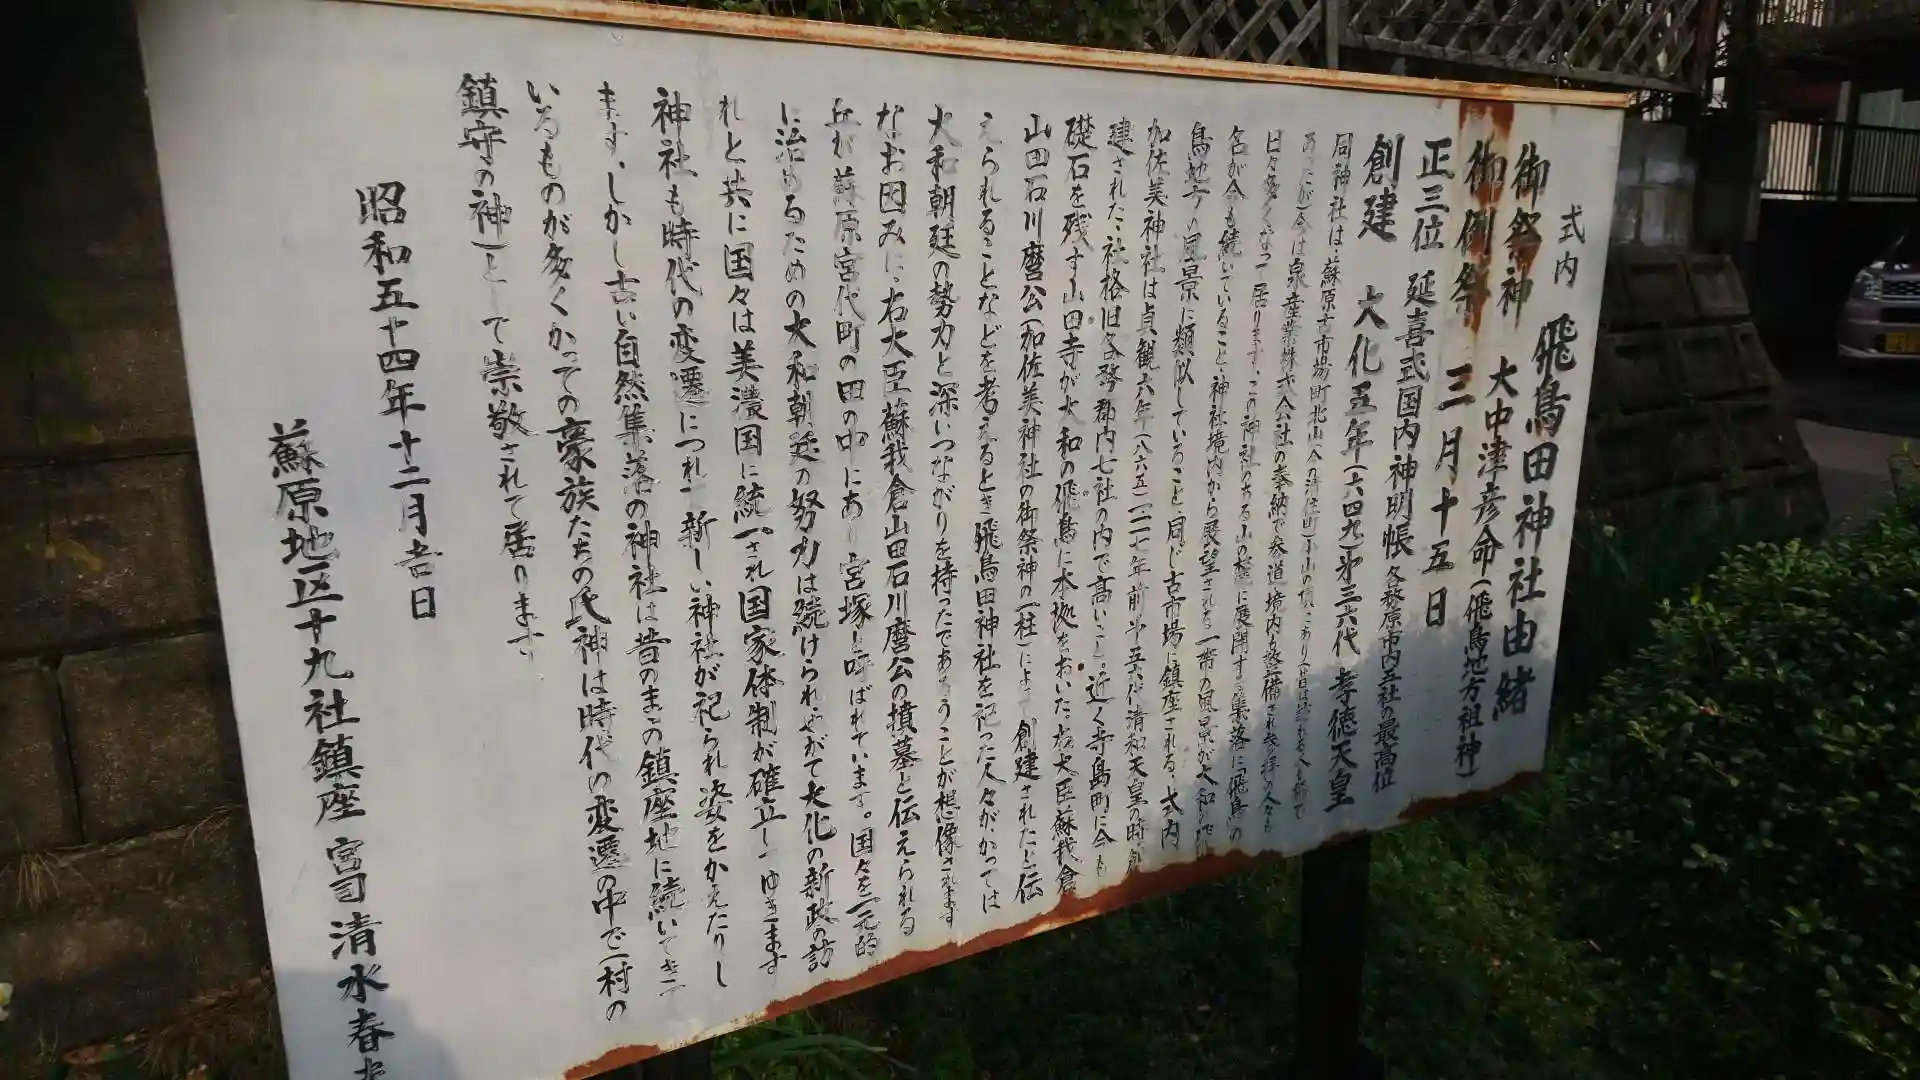 式内 飛鳥田神社由緒
御祭神 大中津彦命(飛鳥地方祖神)
御例祭 三月十五日
正三位 延喜式国内神明帳 各務原市内五社の最高位
創建 大化五年(六四九)第三六代 孝徳天皇
同神社は、蘇原古市場町北山(今の清住町)小山の頂にあり
あったが今は泉産業株式会社の奉納で参道境内も整備され参拝の人々も
日々多くなって居ります。この神社のある山の麓に展開する集落に「飛鳥」の
名が今も続いていること、神社境内から展望される一帯の風景が大和の飛
鳥地方の風景に類似していること、同じ古市場に鎮座される、式内
加佐美神社は貞観六年(八六五)一一一七年前第五六代清和天皇の時、創
建された、社格旧各務郡内七社の内で高いこと。近く寺島町に今も
礎石を残す山田寺が大和の飛鳥に本拠をおいた右大臣蘇我倉
山田石川麿公(加佐美神社の御祭神の一柱)によって創建されたと伝
えられることなどを考えるとき飛鳥田神社を祀った人々がかつては
大和朝廷の勢力と深いつながりを持ったであろうことが想像されます
なお因みに、右大臣蘇我倉山田石川麿公の墳墓と伝えられる
丘が蘇原宮代町の田の中にあり宮塚と呼ばれています。国々を一元的
に治めるための大和朝廷の努力は続けられやがて大化の新政の訪
れと共に国々は美濃国に統一され国家体制が確立してゆきます
神社も時代の変遷につれて新しい神社が祀られ姿をかえたりし
ます、しかし古い自然集落の神社は昔のままの鎮座地に続いてきて
いるものが多くかつての豪族たちの氏神は時代の変遷の中で(村の
鎮守の神)として崇敬されて居ります
昭和五十四年十二月吉日
蘇原地区十九社鎮座 宮司 清水春